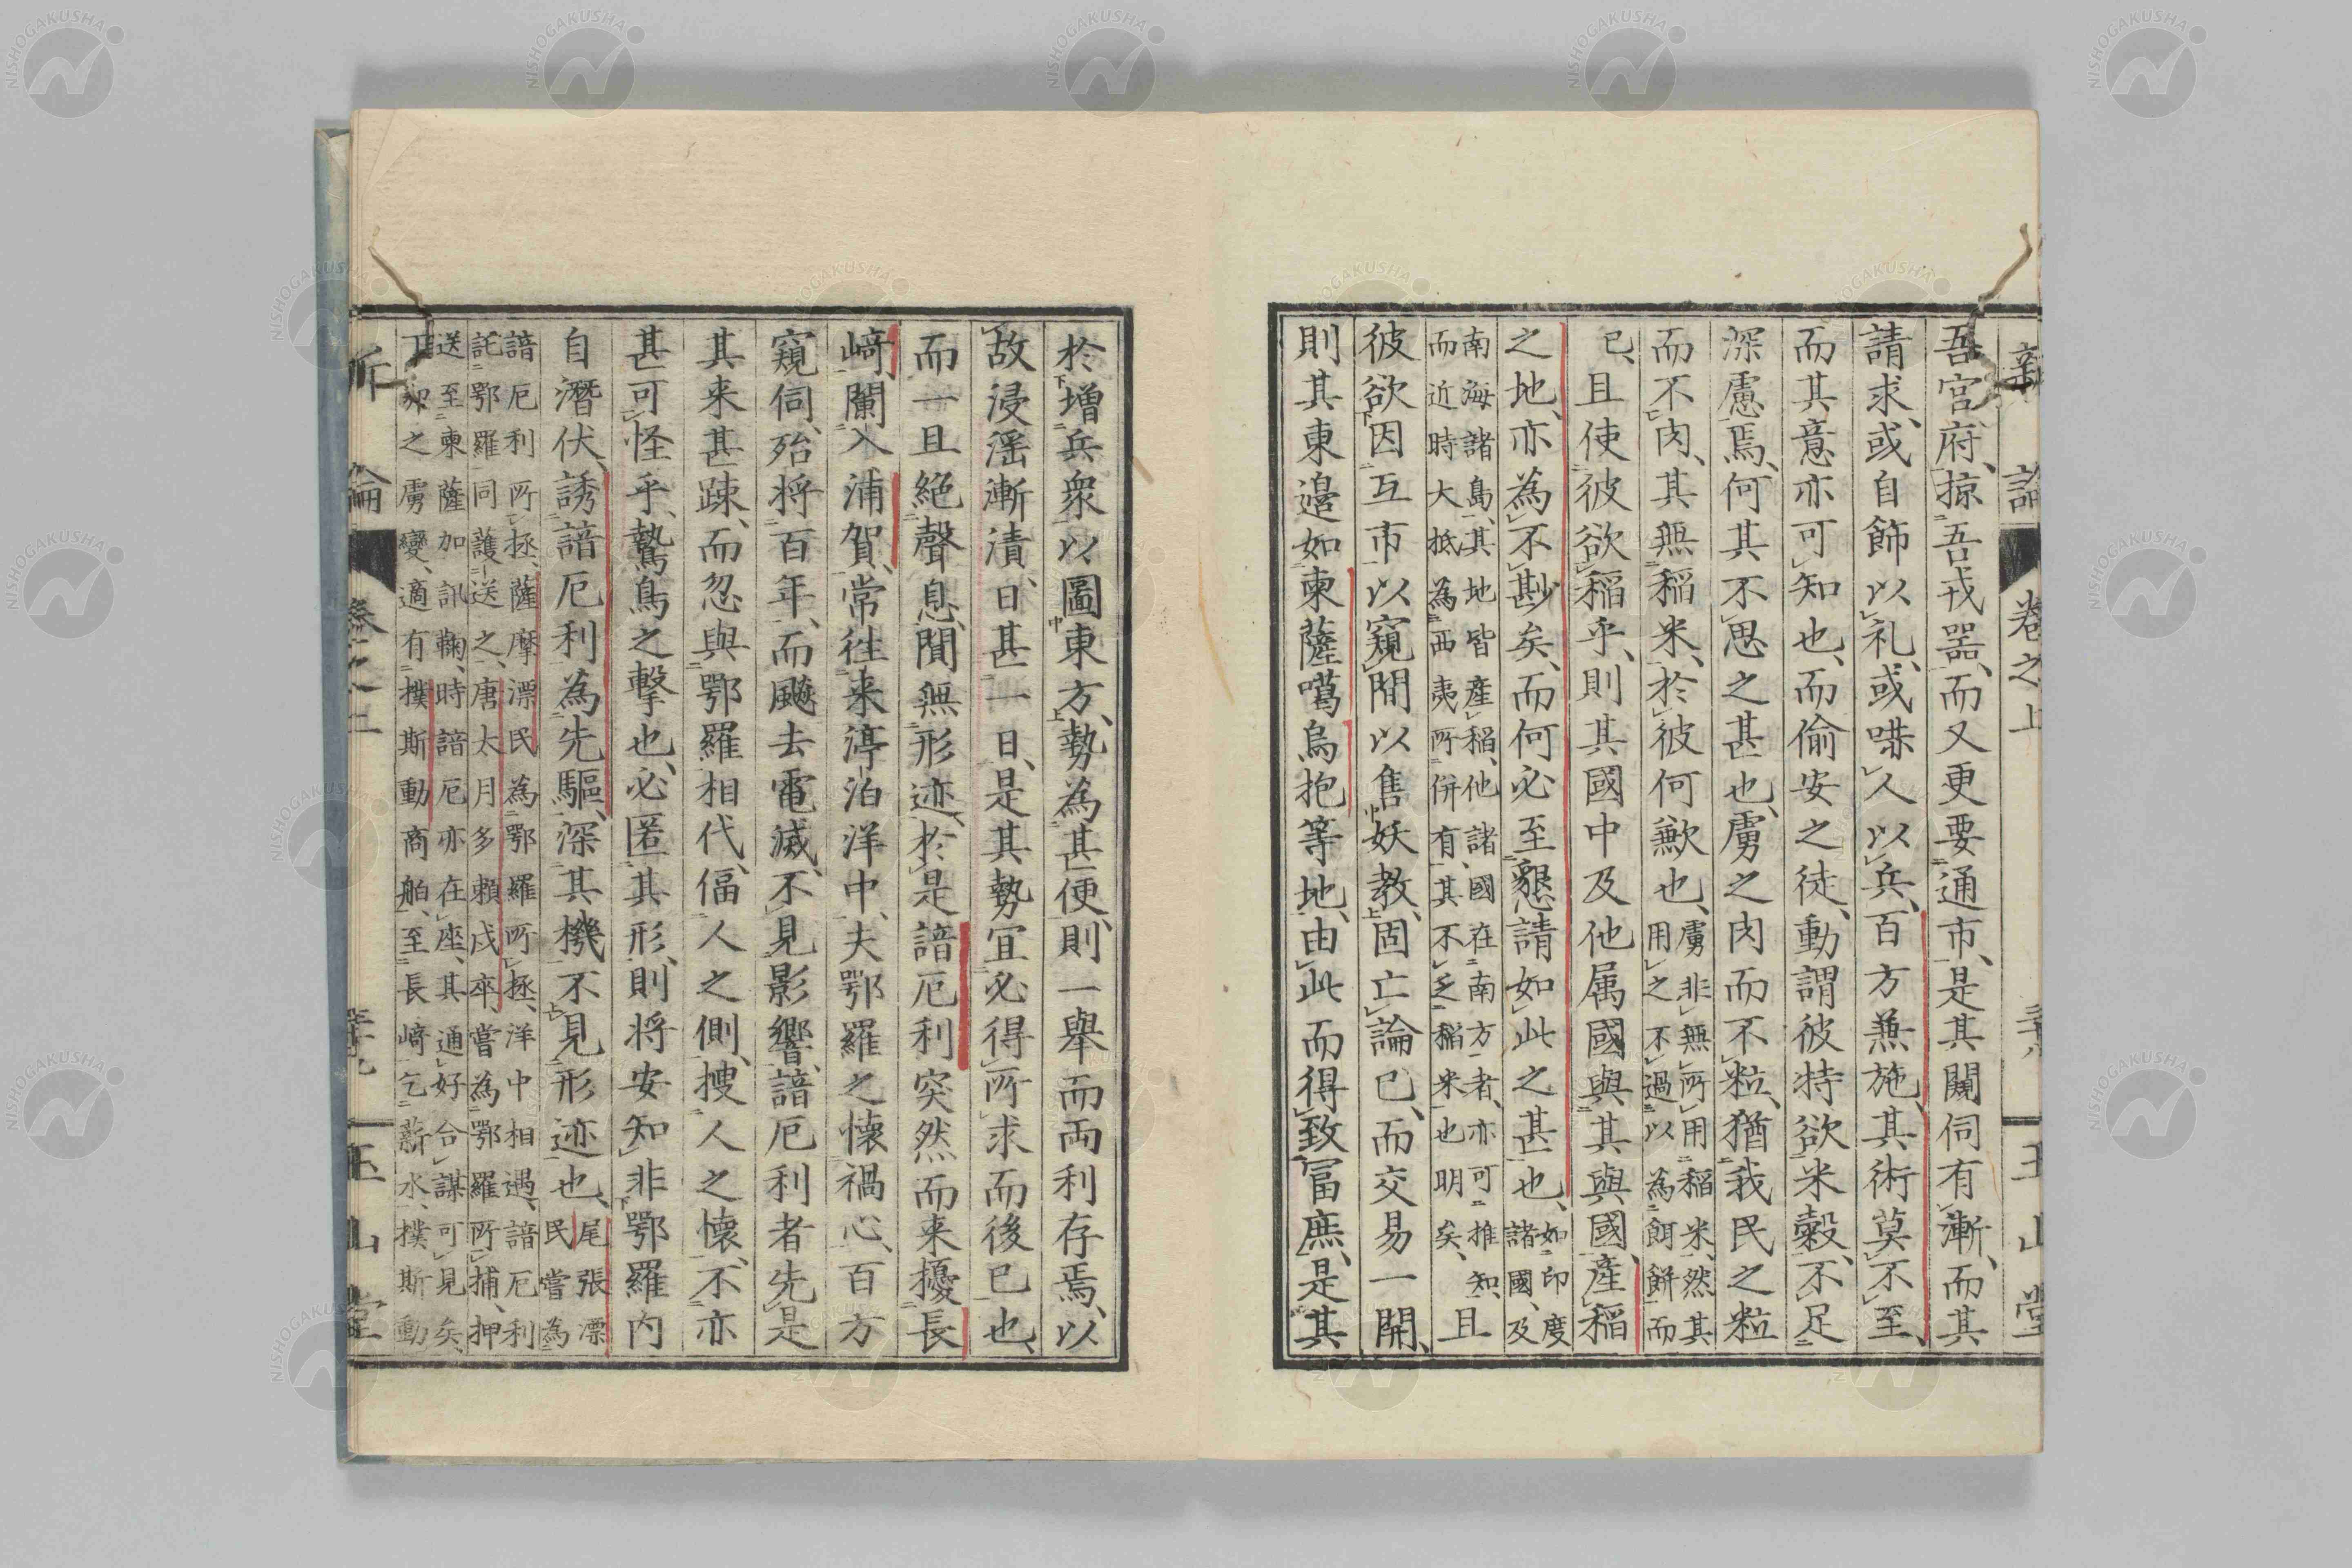 新論 卷之上 三十八 玉山堂
吾宮府、掠吾戎器、而又更要通市、是其闚伺有漸、而其
請求、或自飾以礼、或啀人以兵、百方兼施、其術莫不至、
而其意亦可知也、而偷安之徒、動謂彼特欲米穀、不足
深慮焉、何其不思之甚也、虜之肉而不粒、猶我民之粒
而不肉、其無稲米、於彼何歉也、
虜非無所用稲米、然其
用之不過以為餌餅而
已、且使彼欲稲乎、則其國中及他属國與其與國、産稲
之地、亦為不尠矣、而何必至懇請如此之甚也、
如印度
諸國、及
南海諸島、其地皆産稲、他諸國在南方者、亦可推知、
而近時大抵為西夷所併有、其不乏稲米也明矣、
且
彼欲因互市以窺間以售妖教、固亡論已、而交易一開、
則其東邉如東薩噶烏抱等地、由此而得致冨庶、是其
於増兵衆以圖東方、勢為甚便、則一舉而両利存焉、以
故浸淫漸漬、日甚一日、是其勢宜必得所求而後已也、
而一旦絶聲息、閴無形迹、於是諳厄利突然而来擾長
﨑、闌入浦賀、常往来渟泊洋中、夫鄂羅之懐禍心、百方
窺伺、殆将百年、而颷去電滅、不見影響、諳厄利者先是
其来甚踈、而忽與鄂羅相代、偪人之側、捜人之懐、不亦
甚可怪乎、鷙鳥之撃也、必匿其形、則将安知非鄂羅内
自濳伏、誘諳厄利為先驅、深其機不見形迹也、
尾張漂
民嘗為
諳厄利所拯、薩摩漂民為鄂羅所拯、洋中相遇、諳厄利
託鄂羅同護送之、唐太月多頼戍卒、嘗為鄂羅所捕、押
送至東薩加訊鞠、時諳厄亦在座、其通好合謀可見矣、
丁卯之虜變、適有撲斯動商舶、至長﨑乞薪水、撲斯動
新論 卷之上 三十九 玉山堂